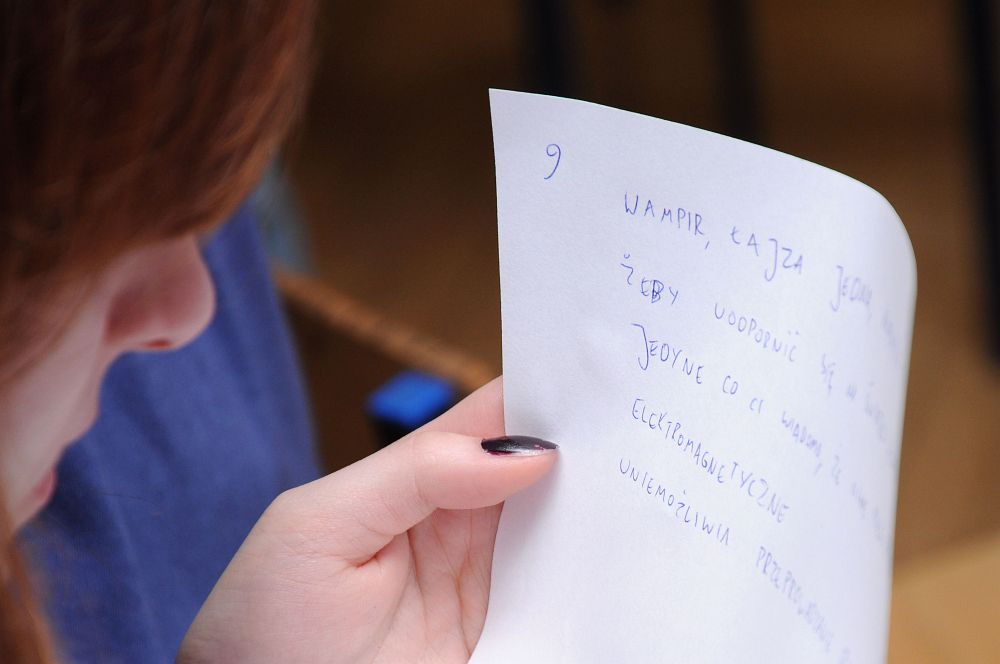 9
WAMPIR, ŁAJZA JEDNA,
ŻEBY UODPORNIĆ SIĘ W
JEDYNE CO CI WIADOMO, ŻE
ELEKTROMAGNETYCZNE
UNIEMOŻLIWIA